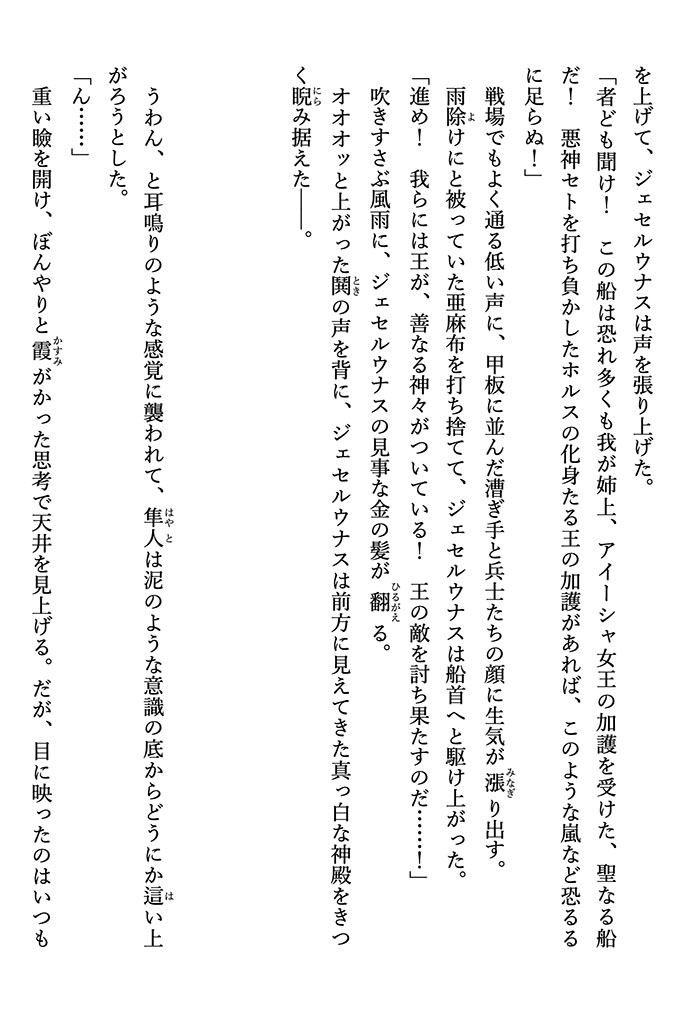 を上げて、ジェセルウナスは声を張り上げた。
「者ども聞け！　この船は恐れ多くも我が姉上、アイーシャ女王の加護を受けた、聖なる船
だ！　悪神セトを打ち負かしたホルスの化身たる王の加護があれば、このような嵐など恐るる
に足らぬ！」
戦場でもよく通る低い声に、甲板に並んだ漕ぎ手と兵士たちの顔に生気が漲り出す。
雨除けにと被っていた亜麻布を打ち捨てて、ジェセルウナスは船首へと駆け上がった。
「進め！　我らには王が、善なる神々がついている！　王の敵を討ち果たすのだ……！」
吹きすさぶ風雨に、ジェセルウナスの見事な金の髪が翻る。
オオオッと上がった鬨の声を背に、ジェセルウナスは前方に見えてきた真っ白な神殿をきつ
く睨み据えた――。
うわん、と耳鳴りのような感覚に襲われて、隼人は泥のような意識の底からどうにか這い上
がろうとした。
「ん……」
重い瞼を開け、ぼんやりと霞がかった思考で天井を見上げる。だが、目に映ったのはいつも